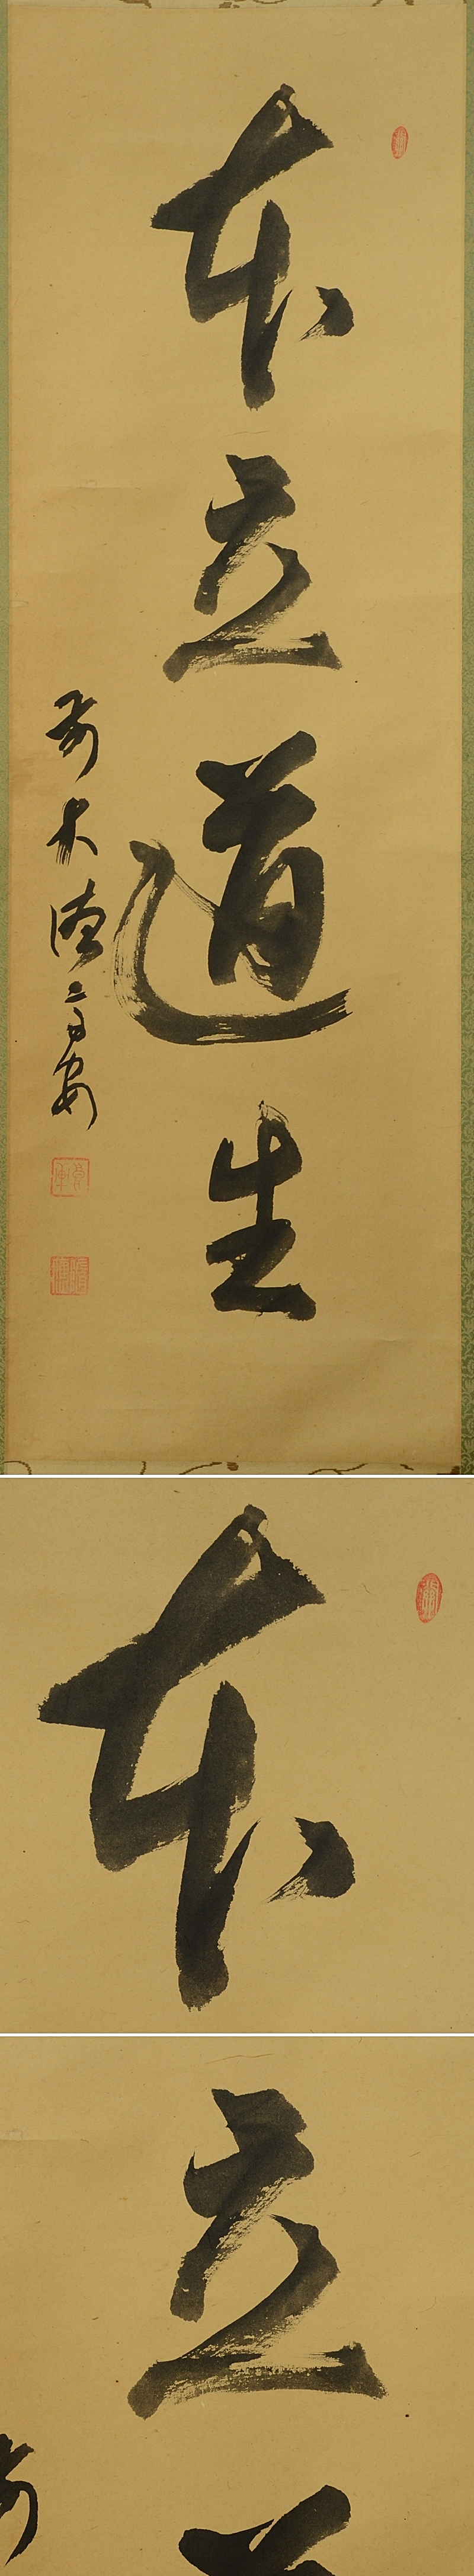 本立道生
前大徳
本
立